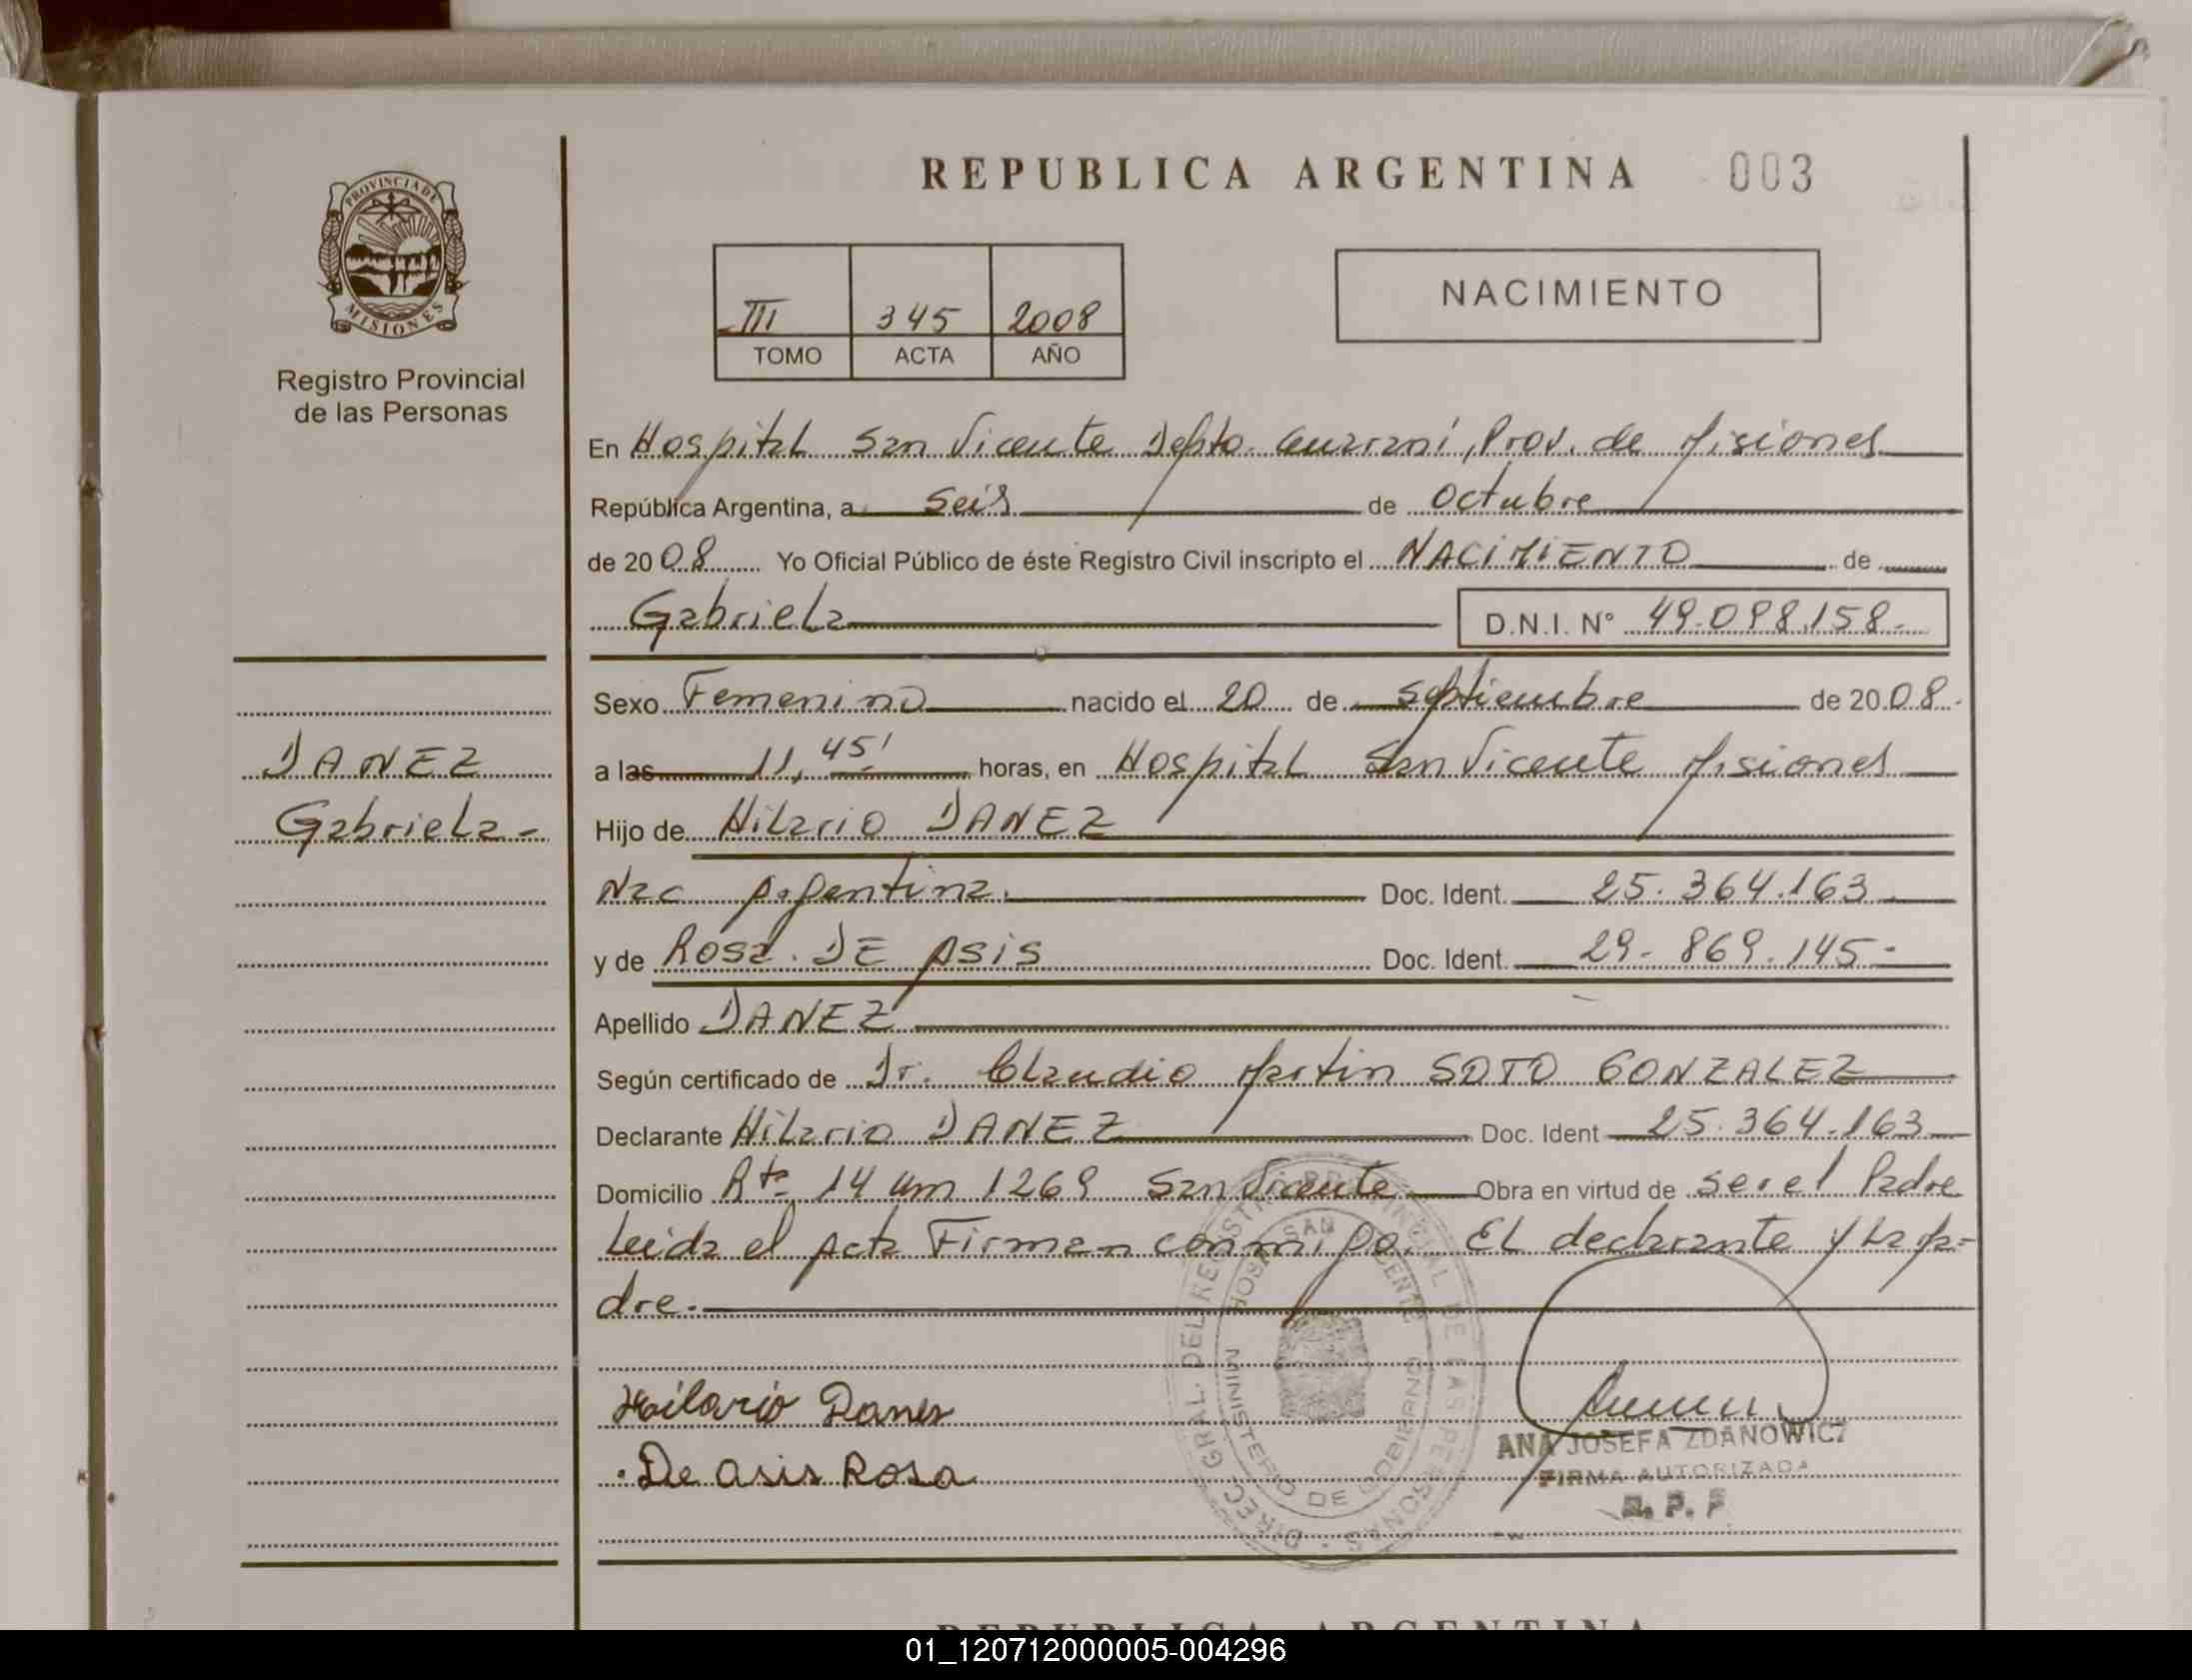 REPUBLICA ARGENTINA 003
PROVINCIA DE
MISIONES
Registro Provincial
de las Personas
III 345 2008
TOMO ACTA AÑO
NACIMIENTO
En Hospital San Vicente Depto. Guaraní, Prov. de Misiones
República Argentina, a Seis de Octubre
de 2008 Yo Oficial Público de éste Registro Civil inscripto el NACIMIENTO de
Gabriela D.N.I. Nº 49.098.158.-
Sexo Femenino nacido el 20 de Septiembre de 2008.
DANEZ
Gabriela-
a las 11,45' horas, en Hospital San Vicente Misiones
Hijo de Hilario DANEZ
Nac Argentina. Doc. Ident. 25.364.163
y de Rosa DE ASIS Doc. Ident. 29-869.145-
Apellido DANEZ
Según certificado de Dr. Claudio Martin SOTO GONZALEZ
Declarante Hilario DANEZ Doc. Ident 25.364.163
Domicilio Rta 14 Km 1269 San Vicente Obra en virtud de ser el Padre
Leida el Acta Firman conmigo. El declarante y la Ma-
dre.
Hilario Danez
De asis Rosa
DIREC. GRAL. DEL REGISTRO PROVINCIAL DE LAS PERSONAS
HOSP. SAN VICENTE
MINISTERIO DE GOBIERNO
ANA JOSEFA ZDANOWICZ
FIRMA AUTORIZADA
R. P. P.
REPUBLICA ARGENTINA
01_120712000005-004296